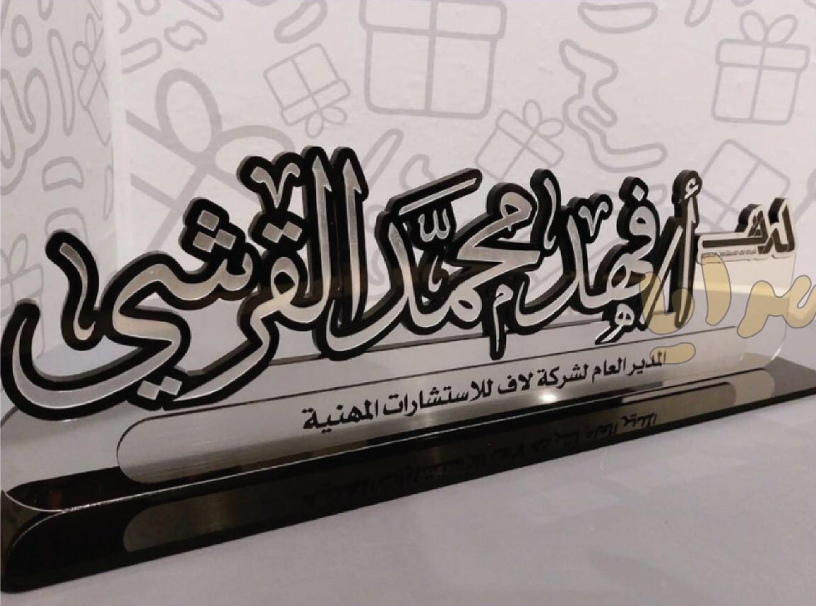 لاف
أ/ فهد محمد القرشي
المدير العام لشركة لاف للاستشارات المهنية
سراب